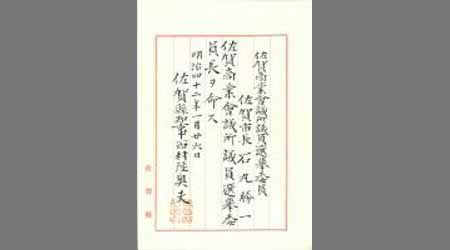 佐賀商業會議所議員選挙委員
佐賀市長 石丸勝一
佐賀商業會議所議員選挙委
員長ヲ命ス
明治四十二年一月廿六日
佐賀縣知事西村陸奥夫
佐賀縣